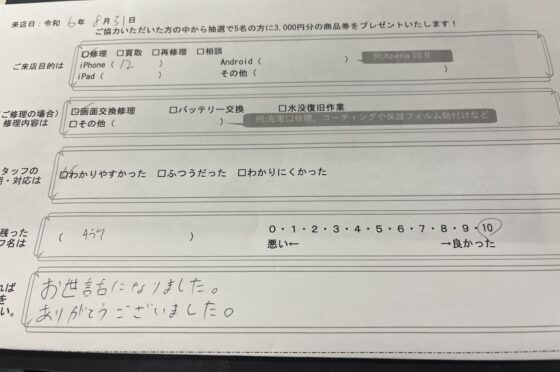 来店日：令和 6年 8月31日
ご協力いただいた方の中から抽選で5名の方に3,000円分の商品券をプレゼントいたします！
ご来店目的は
☑修理 □買取 □再修理 □相談
iPhone ( 12 ) Android ( ) 例:Xperia 10 Ⅱ
iPad ( ) その他 ( )
ご修理の場合)
修理内容は
☑画面交換修理 □バッテリー交換 □水没復旧作業
□その他 ( ) 例:充電口修理、コーティングや保護フィルム貼付けなど
タッフの
・対応は
☑わかりやすかった □ふつうだった □わかりにくかった
残った
フ名は
( ) 0・1・2・3・4・5・6・7・8・9・10
悪い← →良かった
れば
を
い。
お世話になりました。
ありがとうございました。